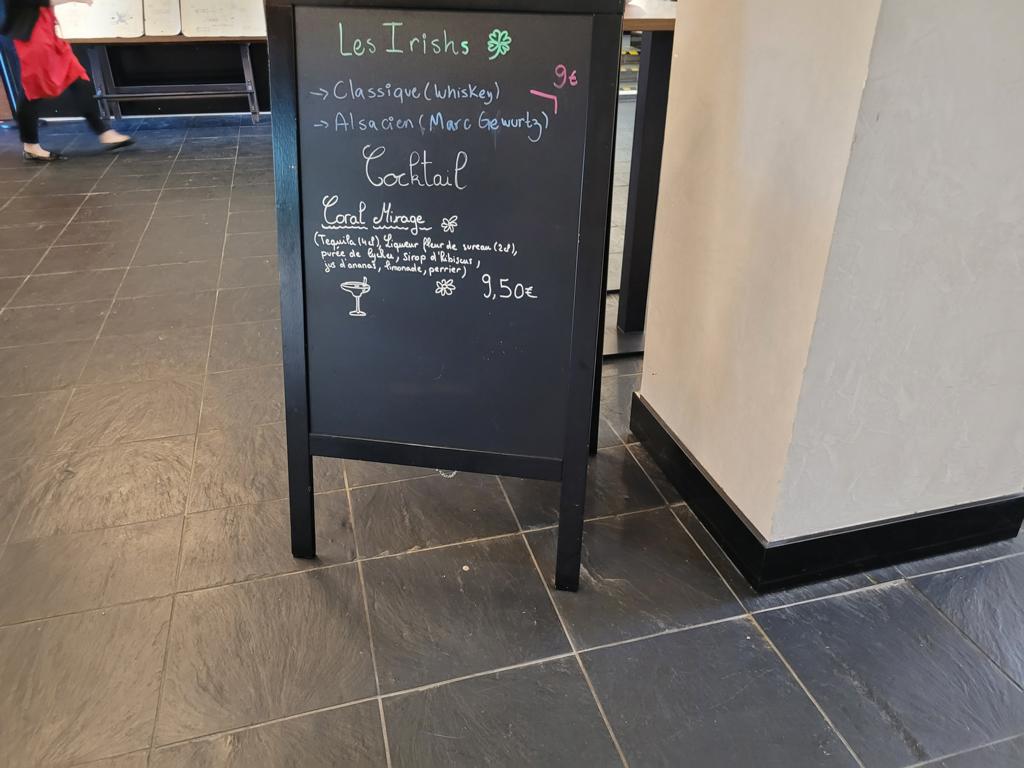 Les Irishs
9€
→ Classique (Whiskey)
→ Alsacien (Marc Gewurtz)
Cocktail
Coral Mirage
(Tequila (4cl), Liqueur fleur de sureau (2cl),
purée de lychee, sirop d'hibiscus,
jus d'ananas, limonade, perrier)
9,50€